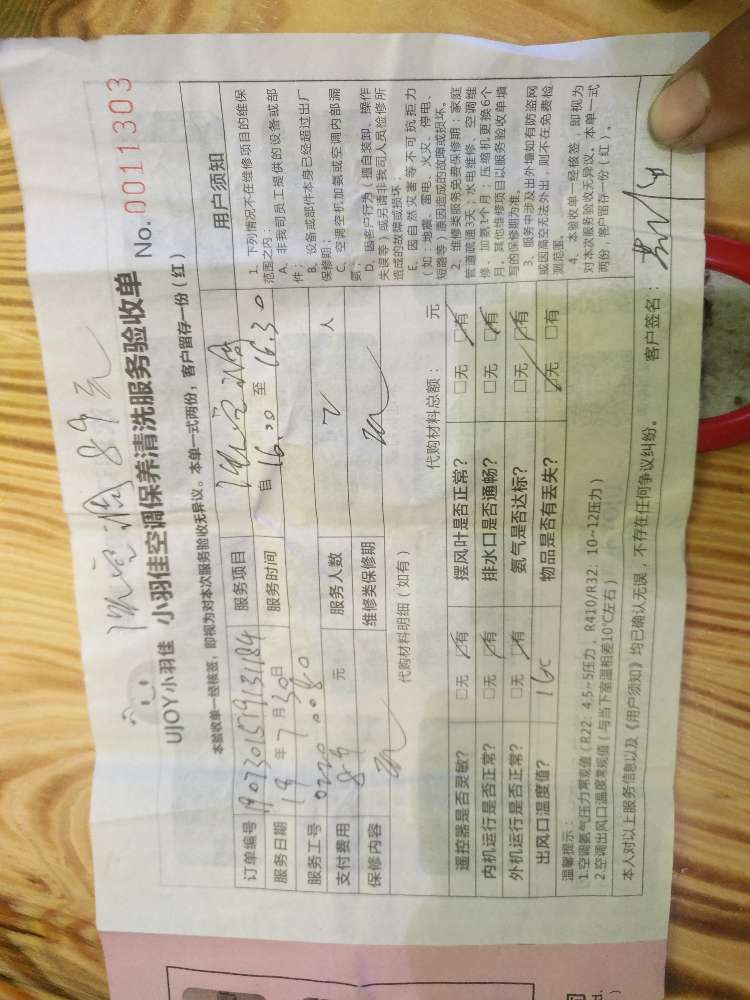 89元
UJOY小羽佳 小羽佳空调保养清洗服务验收单 No. 0011303
本验收单一经核签，即视为对本次服务验收无异议。本单一式两份，客户留存一份（红）
订单编号 服务项目
服务日期 19年7月30日 服务时间 自 16.00 至 16.30
服务工号 0220 0080 服务人数 2 人
支付费用 89 元 维修类保修期
保修内容
代购材料明细（如有） 代购材料总额： 元
遥控器是否灵敏？ □无 ☑有 摆风叶是否正常？ □无 ☑有
内机运行是否正常？ □无 ☑有 排水口是否通畅？ □无 ☑有
外机运行是否正常？ □无 ☑有 氨气是否达标？ □无 ☑有
出风口温度值？ 16c 物品是否有丢失？ ☑无 □有
温馨提示：
1.空调氨气压力常规值（R22：4.5~5压力，R410/R32：10~12压力）
2.空调出风口温度常规值（与当下室温相差10℃左右）
本人对以上服务信息以及《用户须知》均已确认无误，不存在任何争议纠纷。 客户签名：
用户须知
1、下列情况不在维修项目的维保
范围之内：
A、非我司员工提供的设备或部
件；
B、设备或部件本身已经超过出厂
保修期；
C、空调空机加氨或空调内部漏
氨；
D、因客户行为（擅自装卸、操作
失误等）或另请非我司人员检修所
造成的故障或损坏；
E、因自然灾害等不可抗拒力
（如：地震、雷电、火灾、停电、
短路等）原因造成的故障或损坏。
2、维修类服务免费保修期：家庭
管道疏通3天；水电维修、空调维
修、加氨1个月；压缩机更换6个
月，其他维修项目以服务验收单填
写的保修期为准。
3、服务中涉及出外墙如有防盗网
或因高空无法外出，则不在免费检
测范围。
4、本验收单一经核签，即视为
对本次服务验收无异议。本单一式
两份，客户留存一份（红）。